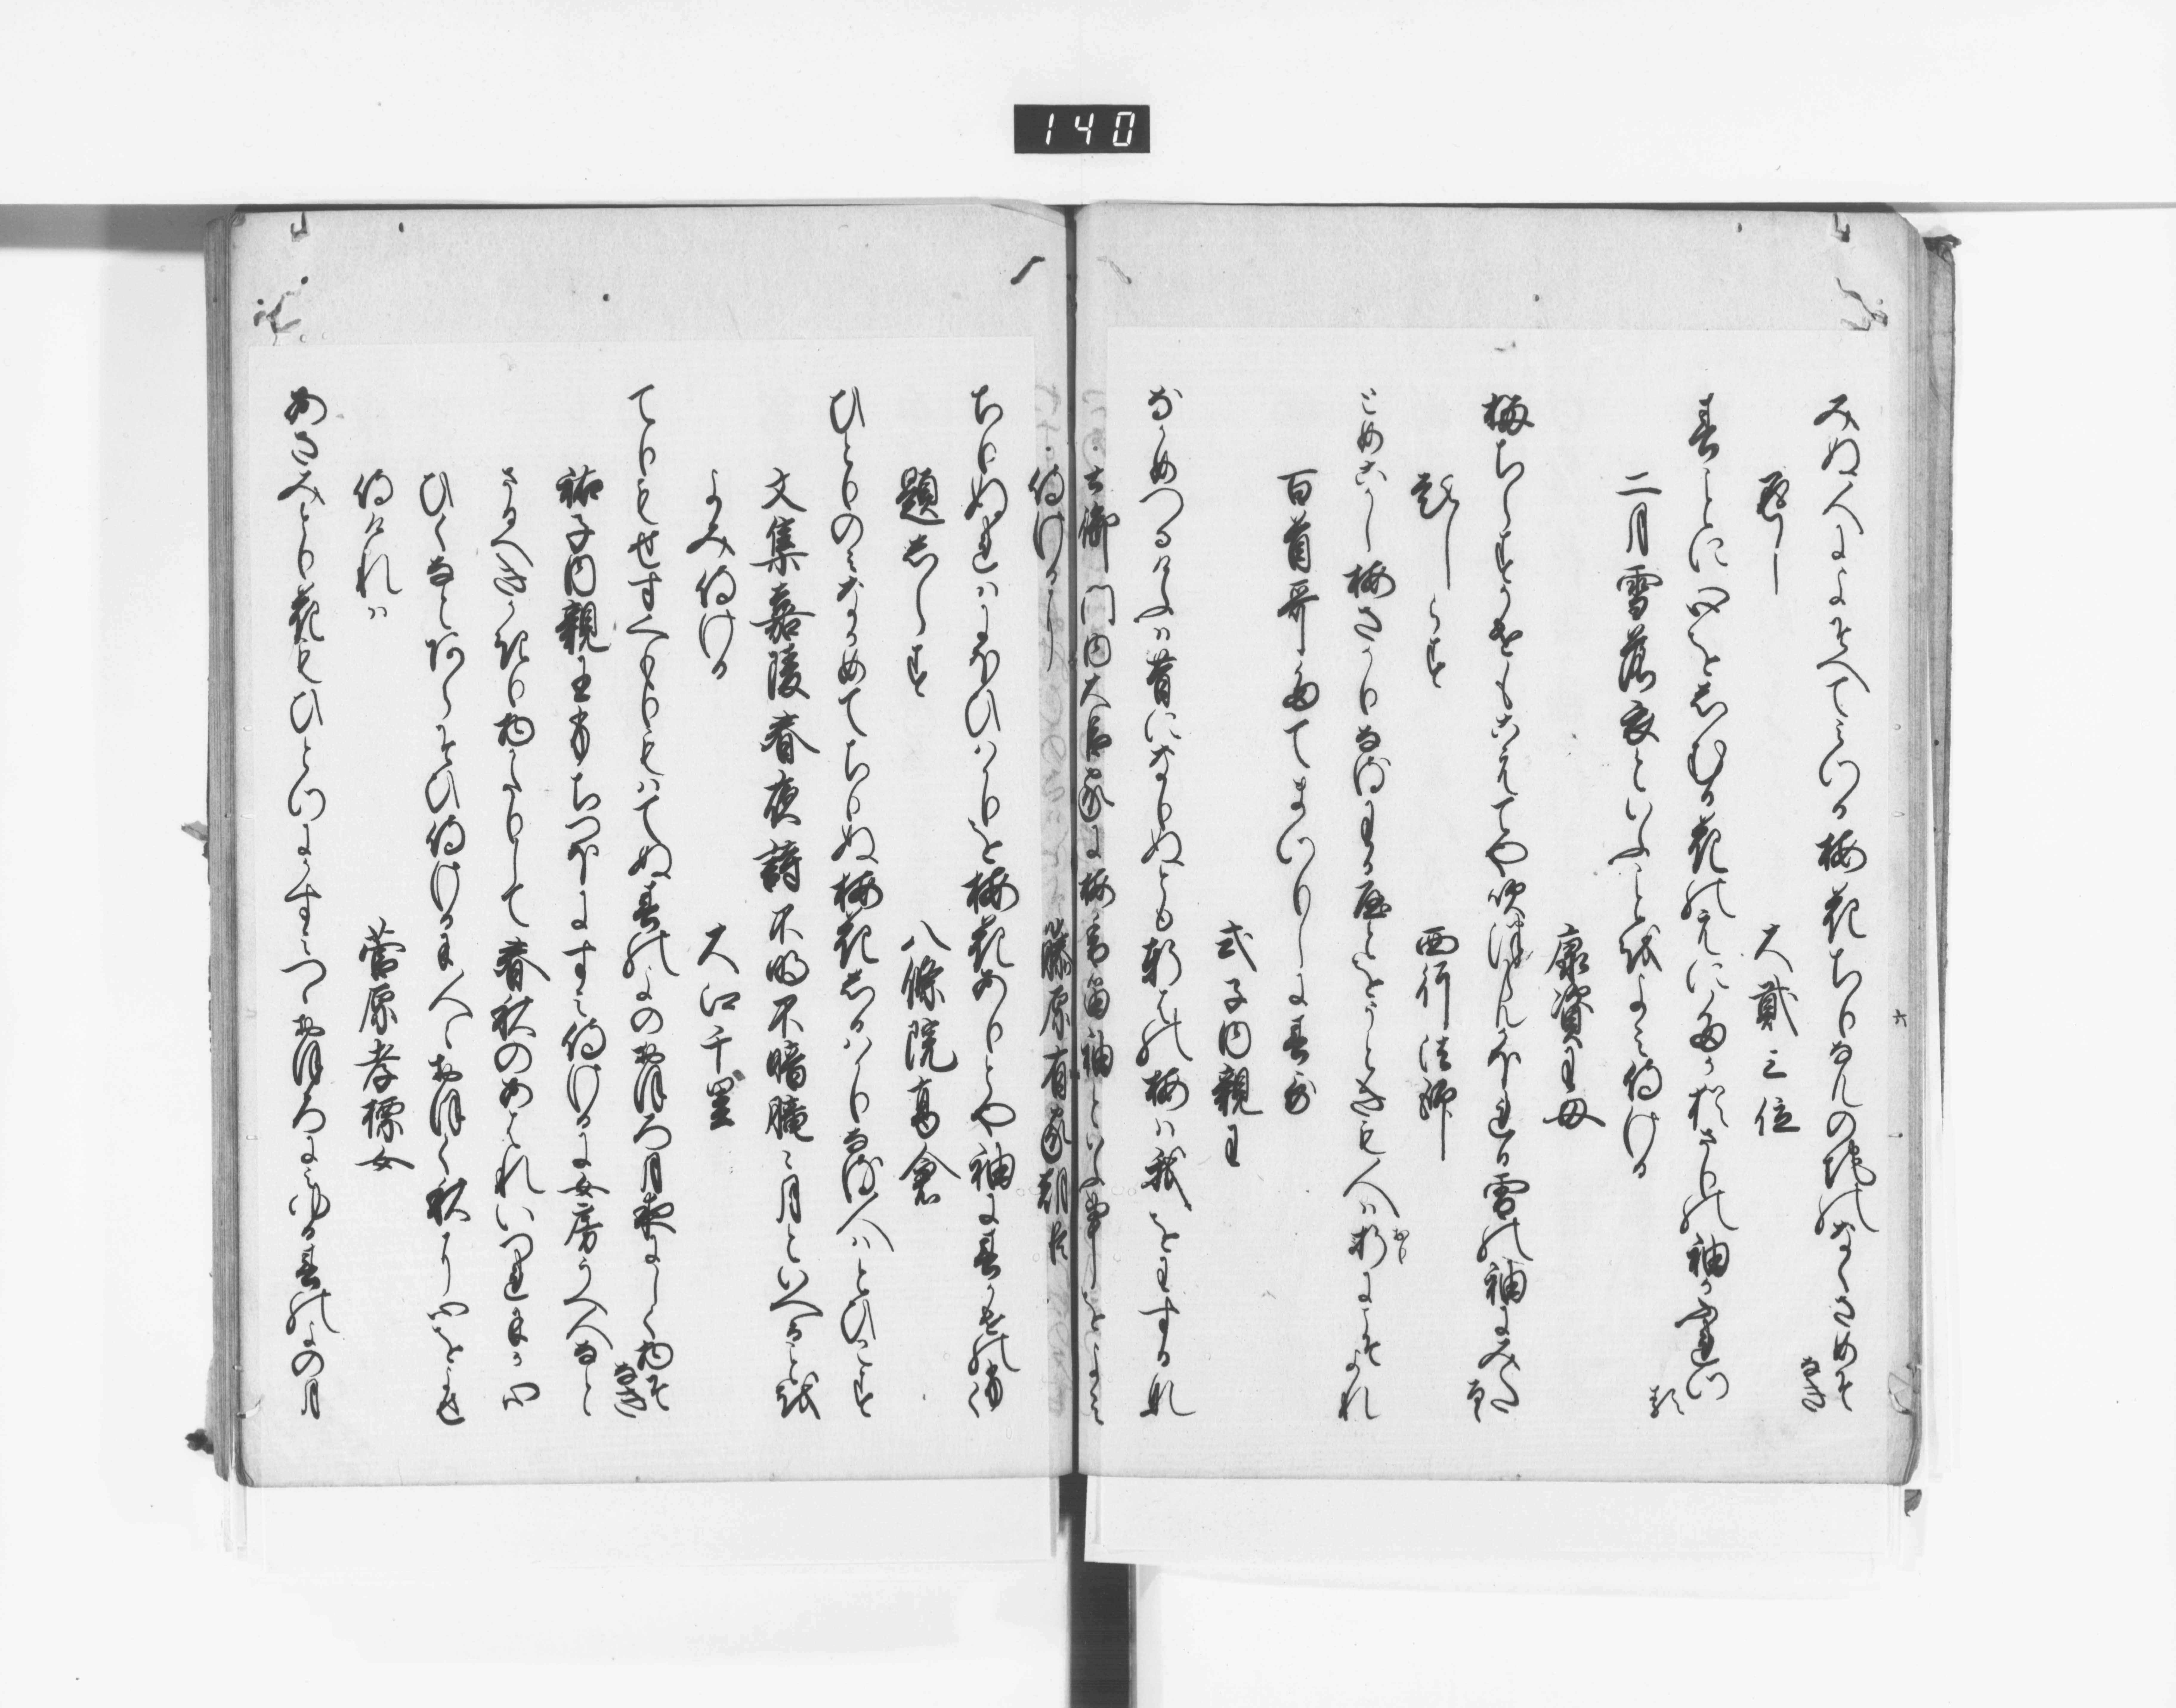 140
みぬ人によそへてみつる梅花ちりなんのちのなくさめそなき
返し　大貳三位
春ことに心をしむる花のえにたかなをさりの袖かふれつる
二月雪落衣といふことをよみ侍ける
康資王母
梅ちらす風もこえてや吹つらんかほれる雪の袖にみたるゝ
題しらす　西行法師
とめこかし梅さかりなるわか宿をうときも人は折にこそよれ
おり
百首哥たてまつりしに春哥
式子内親王
なかめつるけふは昔になりぬとも軒はの梅は我をわするな
土御門内大臣家に梅香留袖といふ事をよみ
侍けるに　藤原有家朝臣
ちりぬれはにほひはかりを梅花ありとや袖に春かせの吹
題しらす　八條院高倉
ひとりのみなかめてちりぬ梅花しるはかりなる人はとひこす
文集嘉陵春夜詩不明不暗朧々月といへることを
よみ侍ける　大江千里
てりもせすくもりもはてぬ春のよのおほろ月夜にしく物そなき
祐子内親王ふちつほにすみ侍けるに女房うへ人なと
さるへきかきり物かたりして春秋のあはれいつれにか心
ひくなとあらそひ侍けるに人々おほく秋に心をよせ
侍けれは　菅原孝標女
あさみとり花もひとつにかすみつゝおほろにみゆる春のよの月